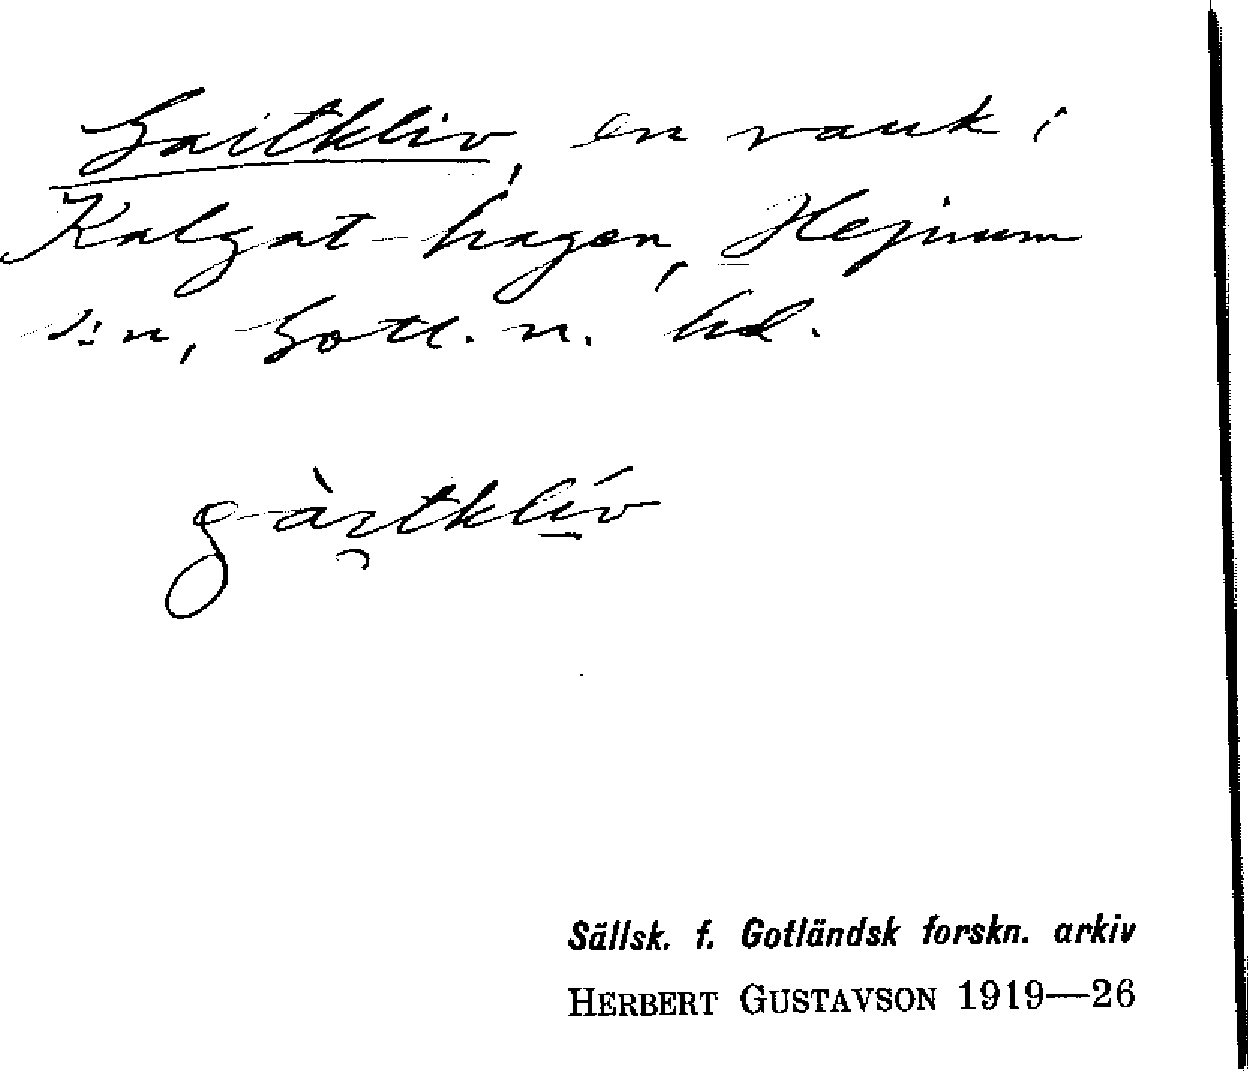 Gaitkliv, en rauk i
Kalgat-hagen, Hejnum
s:n, Gotl. n. hd.
gàıt̯klív
Sällsk. f. Gotländsk forskn. arkiv
HERBERT GUSTAVSON 1919—26